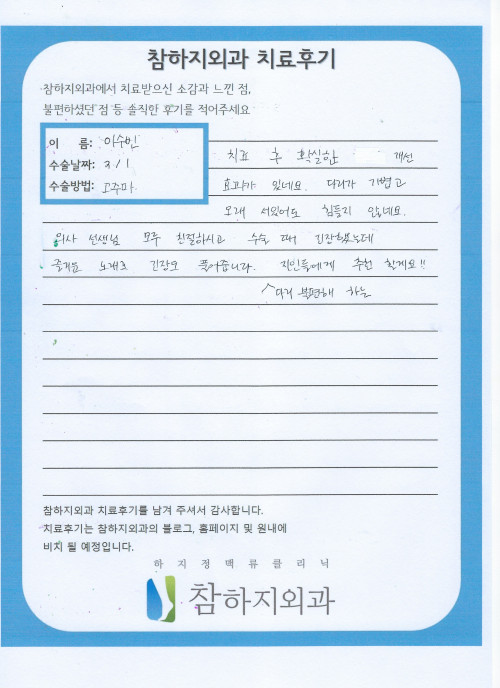 참하지외과 치료후기
참하지외과에서 치료받으신 소감과 느낀 점,
불편하셨던 점 등 솔직한 후기를 적어주세요
이 름: 이수빈
수술날짜: 3/1
수술방법: 고주파
치료 후 확실한 개선
효과가 있네요. 다리가 가볍고
오래 서있어도 힘들지 않네요.
의사 선생님 모두 친절하시고 수술 때 긴장했는데
즐거운 노래로 긴장도 풀어줍니다. 지인들에게 추천 할게요!!
^다리 불편해 하는
참하지외과 치료후기를 남겨 주셔서 감사합니다.
치료후기는 참하지외과의 블로그, 홈페이지 및 원내에
비치 될 예정입니다.
하지정맥류클리닉
참하지외과